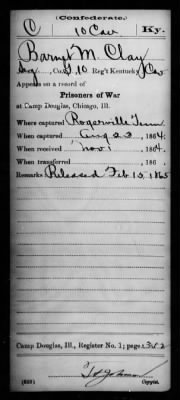 (Confederate.)
C 10 Cav Ky.
M. Clay
Co. 10 Reg't Kentucky Cav
Appears on a record of
Prisoners of War
at Camp Douglas, Chicago, Ill.
Where captured Rogerville Tenn
When captured Aug 23, 1864.
When received Nov 1, 1864.
When transferred , 186 .
Remarks Released Feb 13, 1865
Camp Douglas, Ill., Register No. 1; page 342
(639) Copyist.